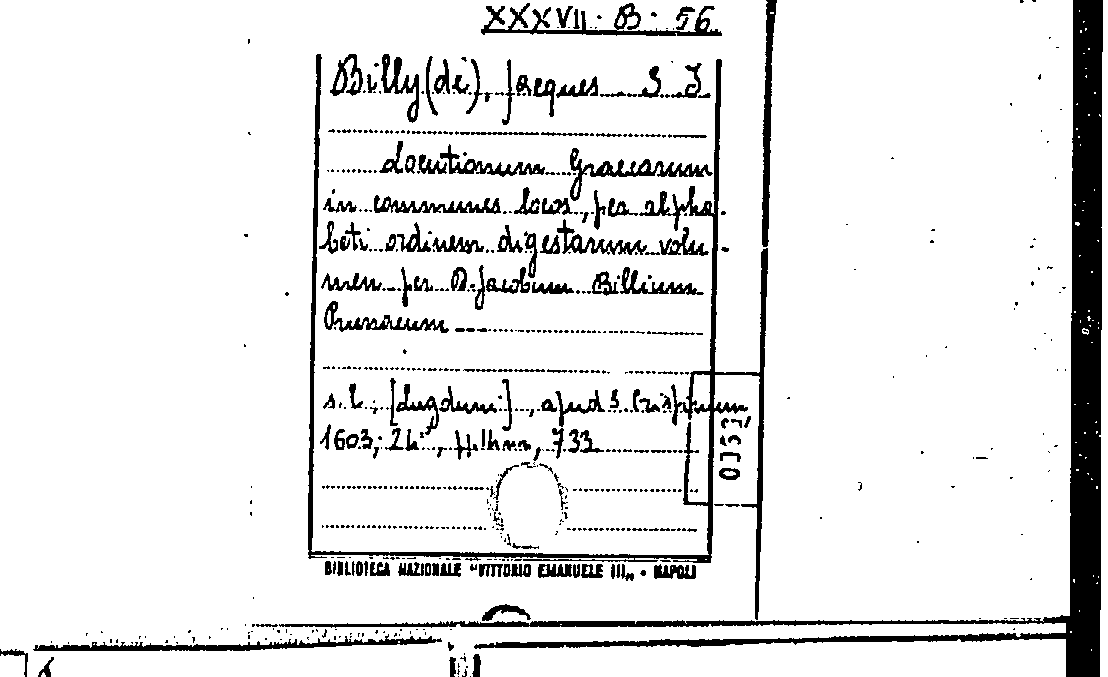 XXXVII. B. 56
Billy (de), Jacques S J
Locutionum Graecarum
in communes locos, per alpha-
beti ordinem digestarum volu-
men per D. Jacobum Billium
Prunaeum ---
s. l. [Lugduni], apud S Crispinum,
1603; 24°, pp. 733
BIBLIOTECA NAZIONALE "VITTORIO EMANUELE III„ - NAPOLI